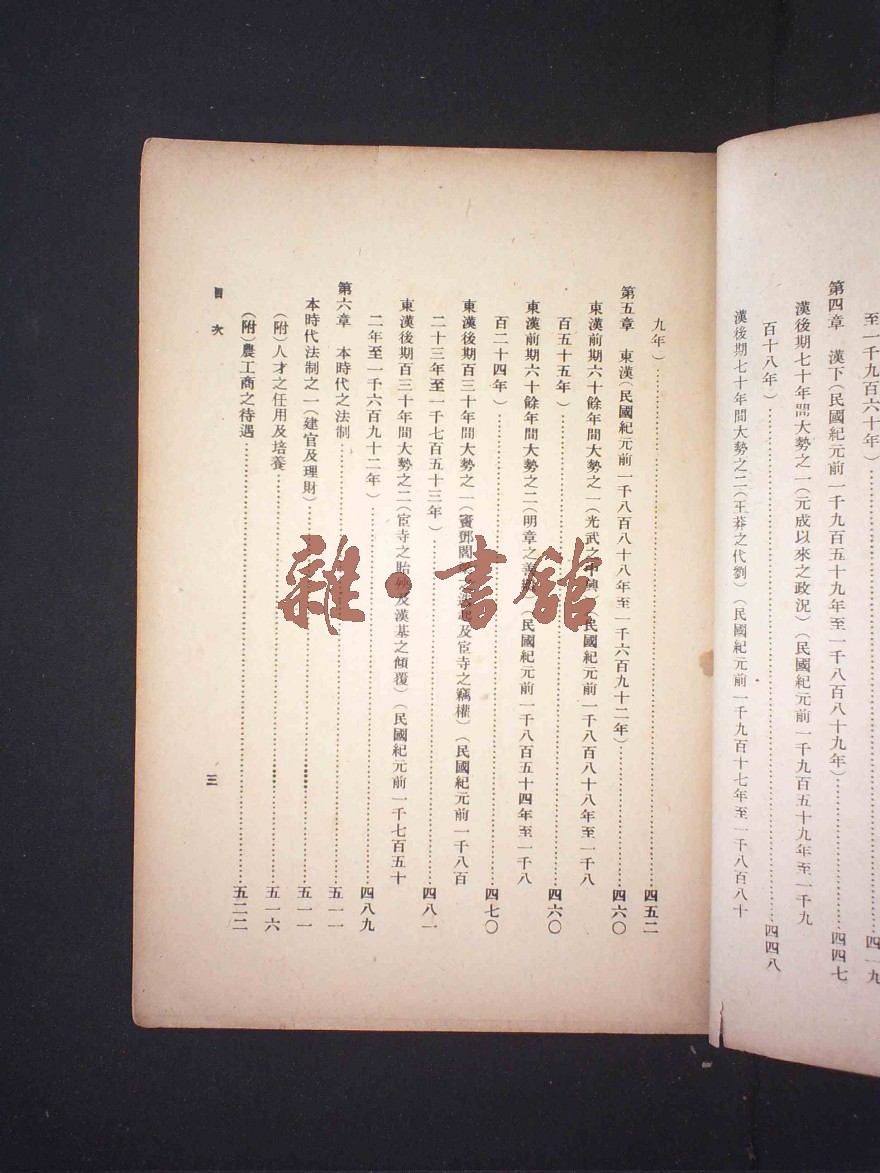 至一千九百六十年）⋯⋯四一九
第四章　漢下（民國紀元前一千九百五十九年至一千八百八十九年）⋯⋯四四七
漢後期七十年間大勢之一（元成以來之政況）（民國紀元前一千九百五十九年至一千九
百十八年）⋯⋯四四八
漢後期七十年間大勢之二（王莽之代劉）（民國紀元前一千九百十七年至一千八百八十
九年）⋯⋯四五二
第五章　東漢（民國紀元前一千八百八十八年至一千六百九十二年）⋯⋯四六〇
東漢前期六十餘年間大勢之一（光武之中興）（民國紀元前一千八百八十八年至一千八
百五十五年）⋯⋯四六〇
東漢前期六十餘年間大勢之二（明章之善（民國紀元前一千八百五十四年至一千八
百二十四年）⋯⋯四七〇
東漢後期百三十年間大勢之一（竇鄧閻起及宦寺之竊權）（民國紀元前一千八百
二十三年至一千七百五十三年）⋯⋯四八一
東漢後期百三十年間大勢之二（宦寺之貽殃及漢基之傾覆）（民國紀元前一千七百五十
二年至一千六百九十二年）⋯⋯四八九
第六章　本時代之法制⋯⋯五一一
本時代法制之一（建官及理財）⋯⋯五一一
（附）人才之任用及培養⋯⋯五一六
（附）農工商之待遇⋯⋯五二二
目次
三
雜·書館